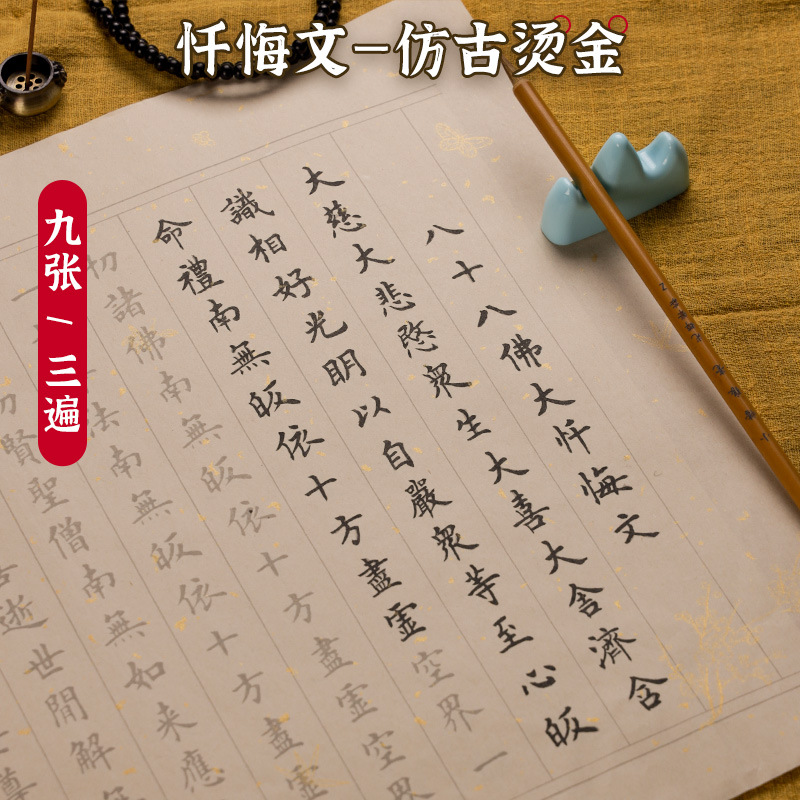 忏悔文-仿古烫金
九张/三遍
八十八佛大忏悔文
大慈大悲愍衆生大喜大舍濟含
識相好光明以自嚴衆等至心皈
命禮南無皈依十方盡虛空界一
切諸佛南無皈依十方盡虛空界
一法南無皈依十方盡虛
切賢聖僧南無如來應
逝世間解